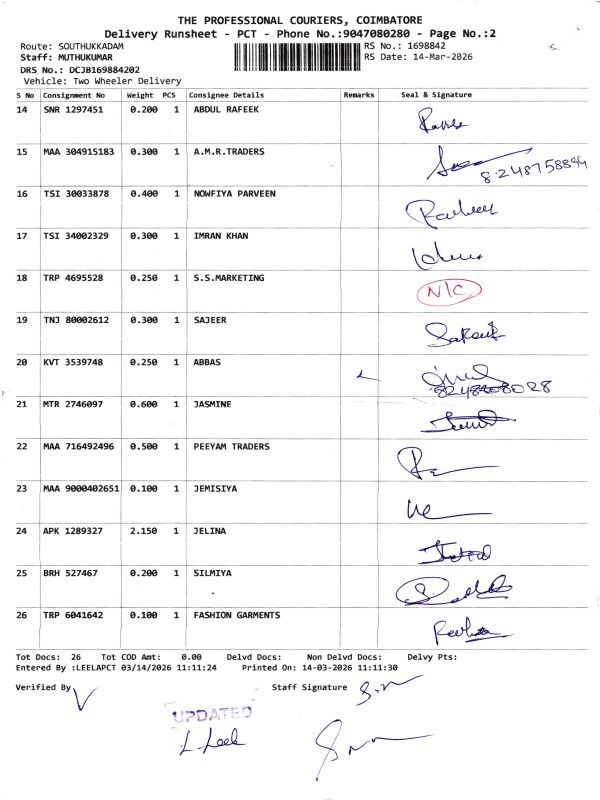 THE PROFESSIONAL COURIERS, COIMBATORE
Delivery Runsheet - PCT - Phone No.:9047080280 - Page No.:2
Route: SOUTHUKKADAM RS No.: 1698842
Staff: MUTHUKUMAR RS Date: 14-Mar-2026
DRS No.: DCJB169884202
Vehicle: Two Wheeler Delivery
S No Consignment No Weight PCS Consignee Details Remarks Seal & Signature
14 SNR 1297451 0.200 1 ABDUL RAFEEK
15 MAA 304915183 0.300 1 A.M.R.TRADERS
16 TSI 30033878 0.400 1 NOWFIYA PARVEEN
17 TSI 34002329 0.300 1 IMRAN KHAN
18 TRP 4695528 0.250 1 S.S.MARKETING N/C
19 TNJ 80002612 0.300 1 SAJEER
20 KVT 3539748 0.250 1 ABBAS
21 MTR 2746097 0.600 1 JASMINE
22 MAA 716492496 0.500 1 PEEYAM TRADERS
23 MAA 9000402651 0.100 1 JEMISIYA
24 APK 1289327 2.150 1 JELINA
25 BRH 527467 0.200 1 SILMIYA
26 TRP 6041642 0.100 1 FASHION GARMENTS
Tot Docs: 26 Tot COD Amt: 0.00 Delvd Docs: Non Delvd Docs: Delvy Pts:
Entered By :LEELAPCT 03/14/2026 11:11:24 Printed On: 14-03-2026 11:11:30
Verified By Staff Signature
UPDATED